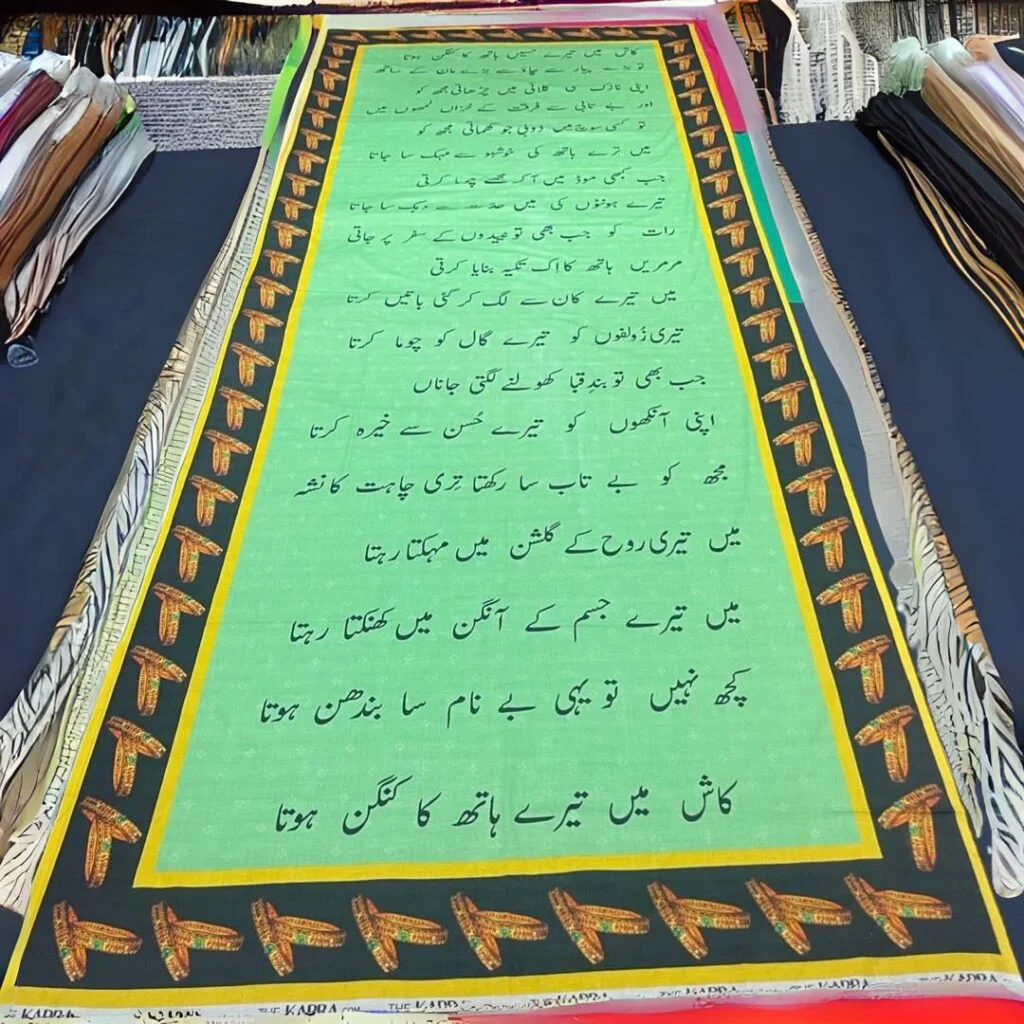 کاش میں تیرے حسیں ہاتھ کا کنگن ہوتا
تو بڑے پیار سے چاؤ سے بڑے مان کے ساتھ
اپنی نازک سی کلائی میں چڑھاتی مجھ کو
اور بے تابی سے فرقت کے خزاں لمحوں میں
تو کسی سوچ میں ڈوبی جو گھماتی مجھ کو
میں ترے ہاتھ کی خوشبو سے مہک سا جاتا
جب کبھی موڈ میں آ کر مجھے چوما کرتی
تیرے ہونٹوں کی میں حدت سے دہک سا جاتا
رات کو جب بھی تو نیندوں کے سفر پر جاتی
مرمریں ہاتھ کا اک تکیہ بنایا کرتی
میں تیرے کان سے لگ کر کئی باتیں کرتا
تیری زُولفوں کو تیرے گال کو چوما کرتا
جب بھی تو بندِ قبا کھولنے لگتی جاناں
اپنی آنکھوں کو تیرے حُسن سے خیرہ کرتا
مجھ کو بے تاب سا رکھتا تری چاہت کا نشہ
میں تیری روح کے گلشن میں مہکتا رہتا
میں تیرے جسم کے آنگن میں کھنکتا رہتا
کچھ نہیں تو یہی بے نام سا بندھن ہوتا
کاش میں تیرے ہاتھ کا کنگن ہوتا
THE KAPRA.COM THE KAPRA THE KAPRA